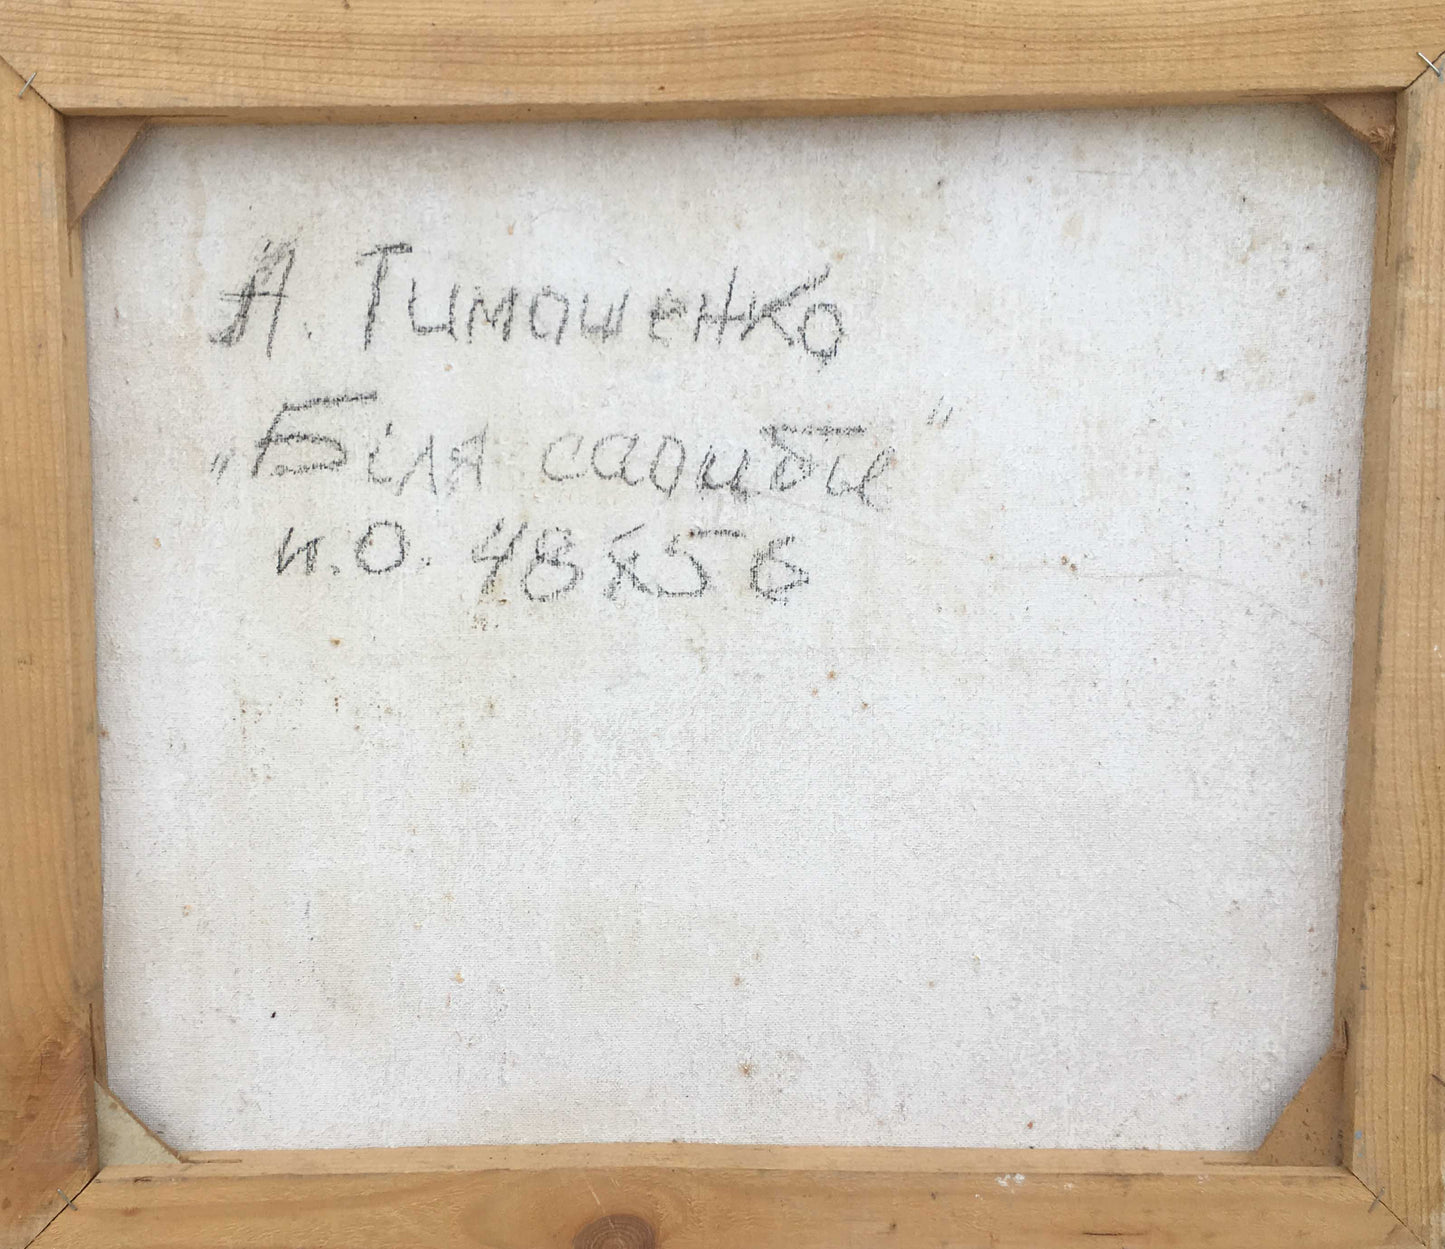 А. Тимошенко
„Біля садиби"
п.О. 48х56